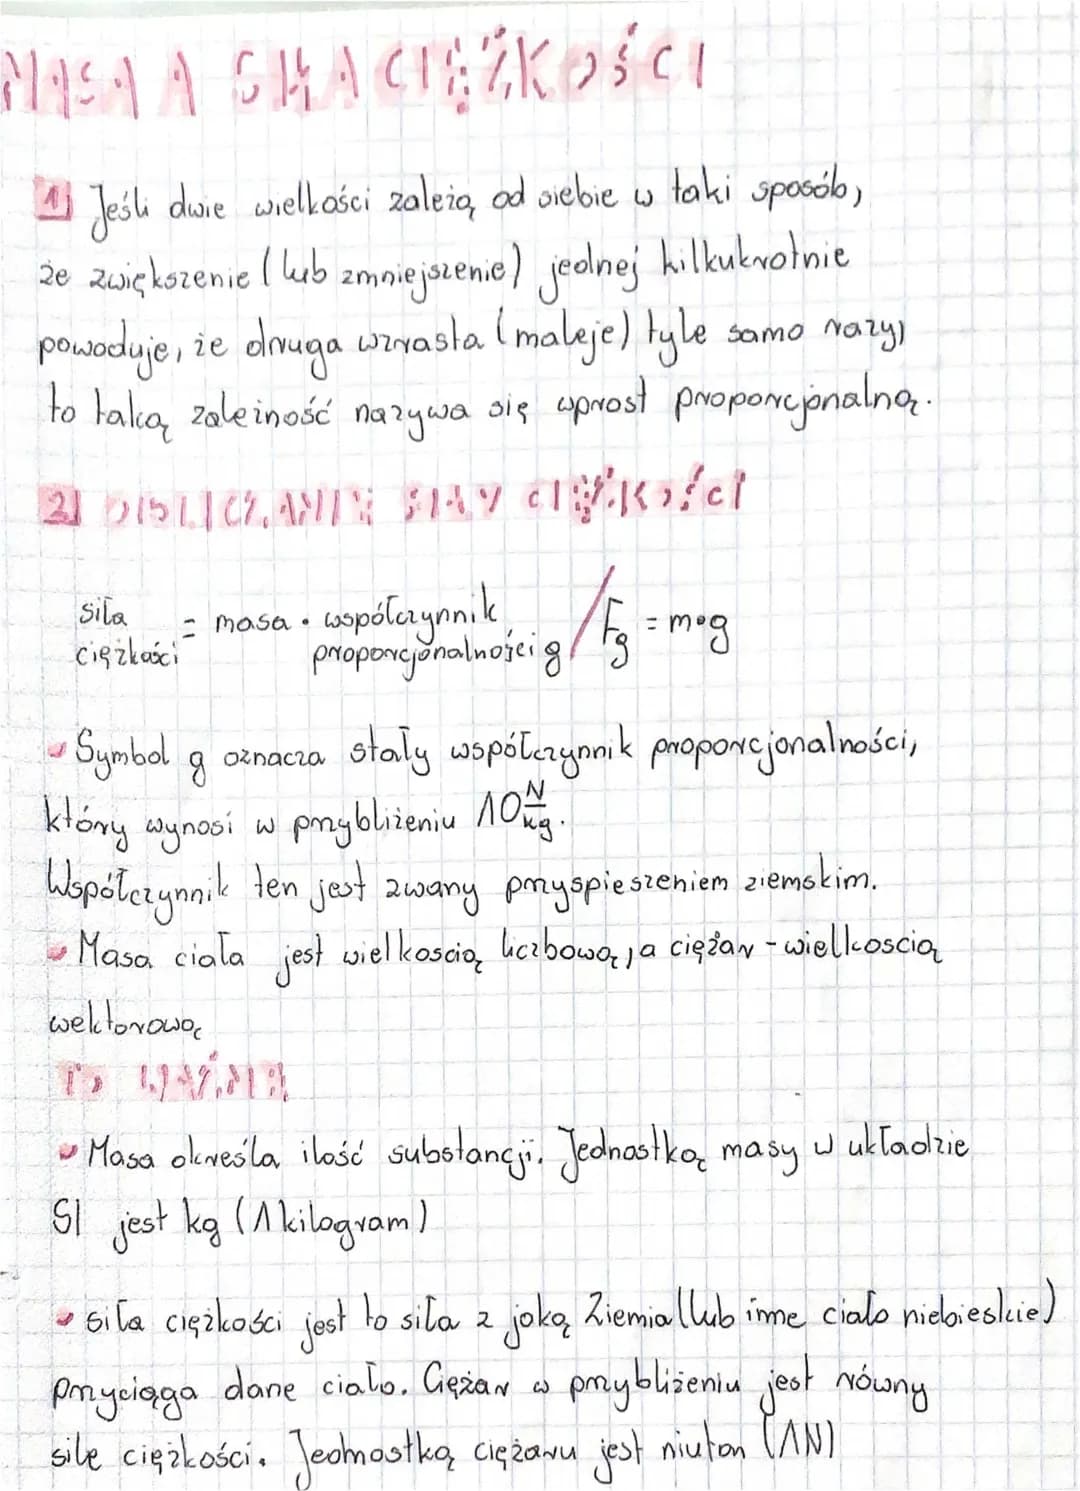 MASA A SIŁA CIĘŻKOŚCI
1) Jeśli dwie wielkości zależą od siebie w taki sposób,
że zwiększenie (lub zmniejszenie) jednej kilkukrotnie
powoduje, że druga wzrasta (maleje) tyle samo razy,
to taką zależność nazywa się wprost proporcjonalną.
2) OBLICZANIE SIŁY CIĘŻKOŚCI
siła ciężkości = masa • współczynnik proporcjonalności g / Fg = m•g
• Symbol g oznacza stały współczynnik proporcjonalności,
który wynosi w przybliżeniu 10 N/kg.
Współczynnik ten jest zwany przyspieszeniem ziemskim.
• Masa ciała jest wielkoscią liczbową, a ciężar - wielkoscią
wektorową
TO WAŻNE
• Masa określa ilość substancji. Jednostką masy w układzie
SI jest kg (1 kilogram)
• siła ciężkości jest to siła z joką Ziemia (lub inne ciało niebieskie)
przyciąga dane ciało. Ciężar w przybliżeniu jest równy
sile ciężkości. Jednostką ciężaru jest niuton (1N)